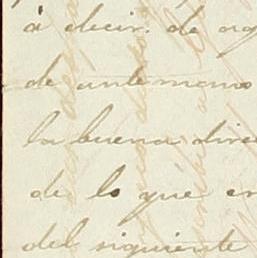 á decir. de
de antemano
la buena dire
de lo que en
del siguiente